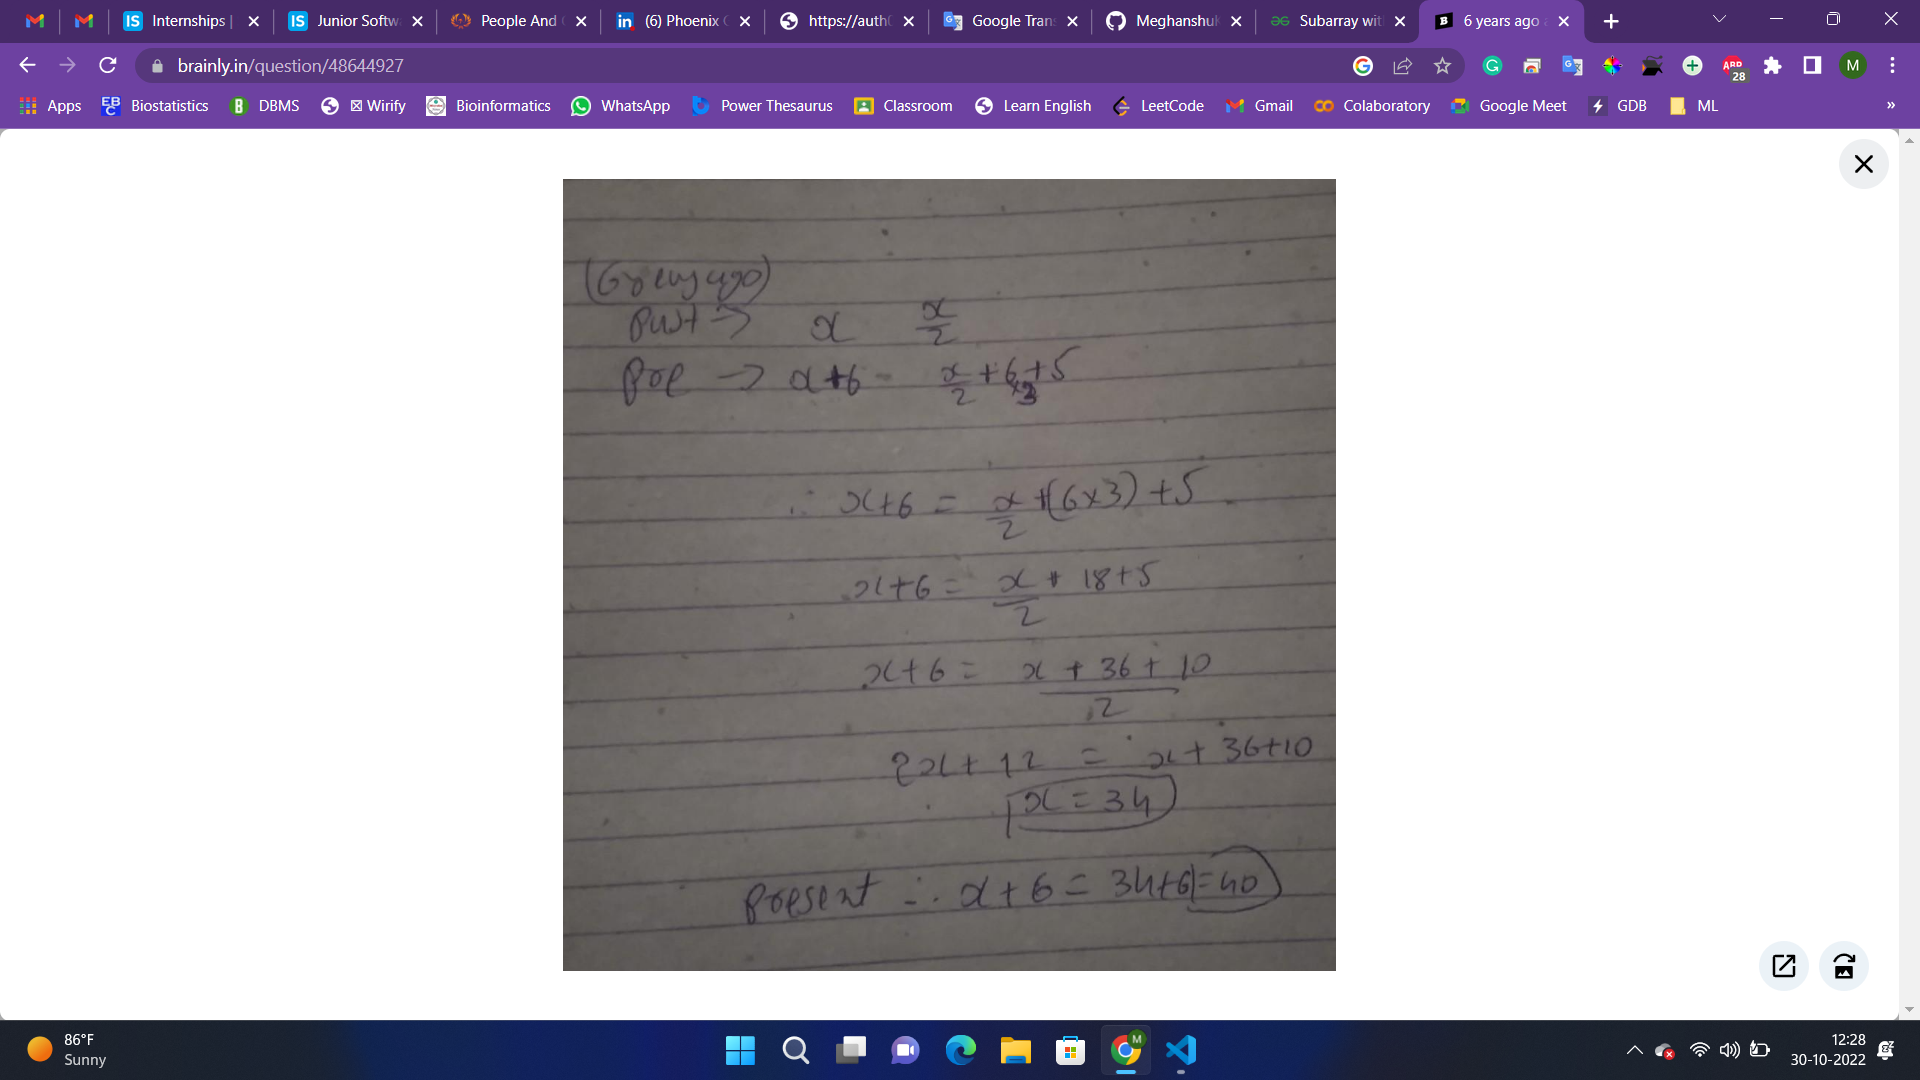 Internships |
Junior Softw
People And
(6) Phoenix
https://auth
Google Tran
Meghanshu
Subarray wit
6 years ago
brainly.in/question/48644927
28
M
Apps
Biostatistics
DBMS
Wirify
Bioinformatics
WhatsApp
Power Thesaurus
Classroom
Learn English
LeetCode
Gmail
Colaboratory
Google Meet
GDB
ML
»
(6 years ago)
Past → x x/2
Pre → x+6 - x/2 + 6×3 + 5
∴ x+6 = x/2 + (6×3) + 5
x+6 = x/2 + 18+5
x+6 = x + 36 + 10 / 2
2x + 12 = x + 36+10
x = 34
Present ∴ x + 6 = 34+6 = 40
86°F
Sunny
12:28
30-10-2022